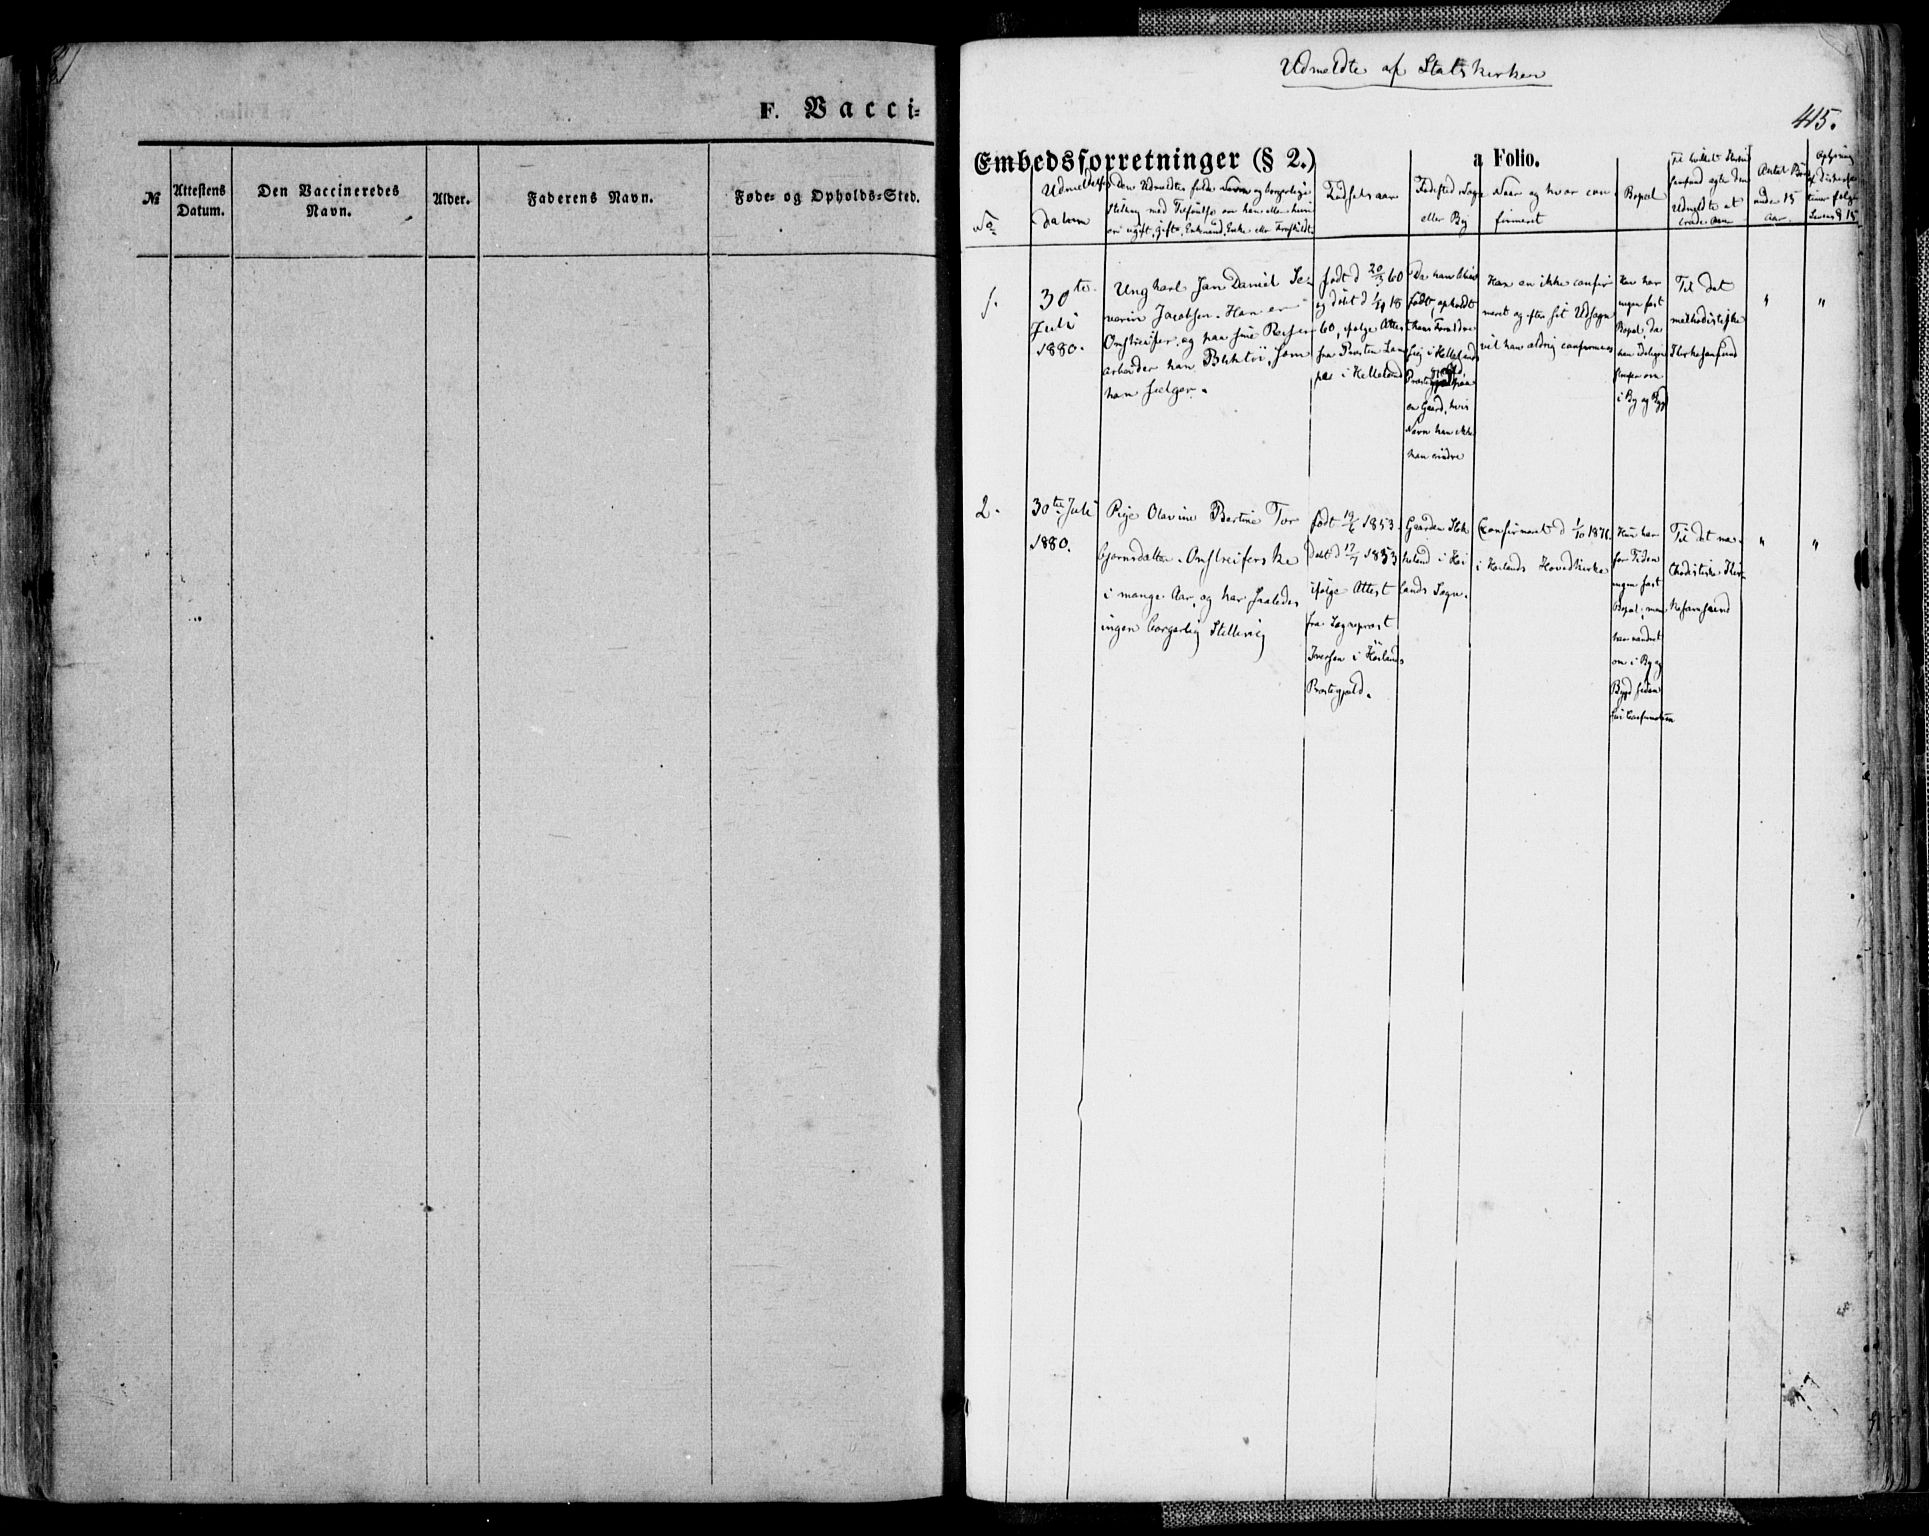 F. Vacci-
№
Attestens
Datum.
Den Vaccineredes
Navn.
Alder.
Faderens Navn.
Føde- og Opholds-Sted.
Udmeldte af Statskirken
415.
Embedsforretninger (§ 2.)
a Folio.
No
Udmeldelses
datum
Den Udmeldtes fulde Navn og borgerlige
Stilling med Tilføielse om han eller hun
er ugift, gift, Enkemand, Enke eller fraskildt
Fødselsaar
Fødested Sogn
eller By
Naar og hvor con
firmeret
Bopæl
Til hvilket
samfund agter den
Udmeldte at
træde
Antal Børn
under 15
Aar
Oplysning
1.
30te
Juli
1880.
Ungkarl Jan Daniel Se-
verin Jacobsen. Han er
Omstreifer, og paa sine Reiser
arbeider han Bliktöi, som
han sælger.
født d 20/3 60
og döbt d
60, ifølge Attest
fra Provsten Lam
pe i Helleland
Da han blev
født, opholdt
hans Forældre
sig i Hellelands
Præstegjæld paa
en Gaard, hvis
Navn han ikke
kan erindre
Han er ikke confir
meret og efter sit Udsagn
vil han aldrig confirmeres
Han har
ingen fast
Bopæl, da
han
reiser om
i By og Bygd
Til det
methodistiske
Kirkesamfund
"
"
2.
30te Juli
1880.
Olavine Bertine Tor
bjørnsdatter. Omstreiferske
i mange Aar, og har saaledes
ingen borgerlig Stilling
født 19/6 1853.
döbt d 17/7 1853
ifölge Attest
fra Sogneprest
Iversen i Höilands
Præstegjæld.
Gaarden
i Höi
lands Sogn.
Confirmeret d 1/10 1876
i Höilands Hovedkirke
Hun har
for Tiden
ingen fast
Bopæl, men
har vandret
om i By og
Bygd siden
sin Confirmation
Til det me-
thodistiske Kir-
kesamfund
"
"